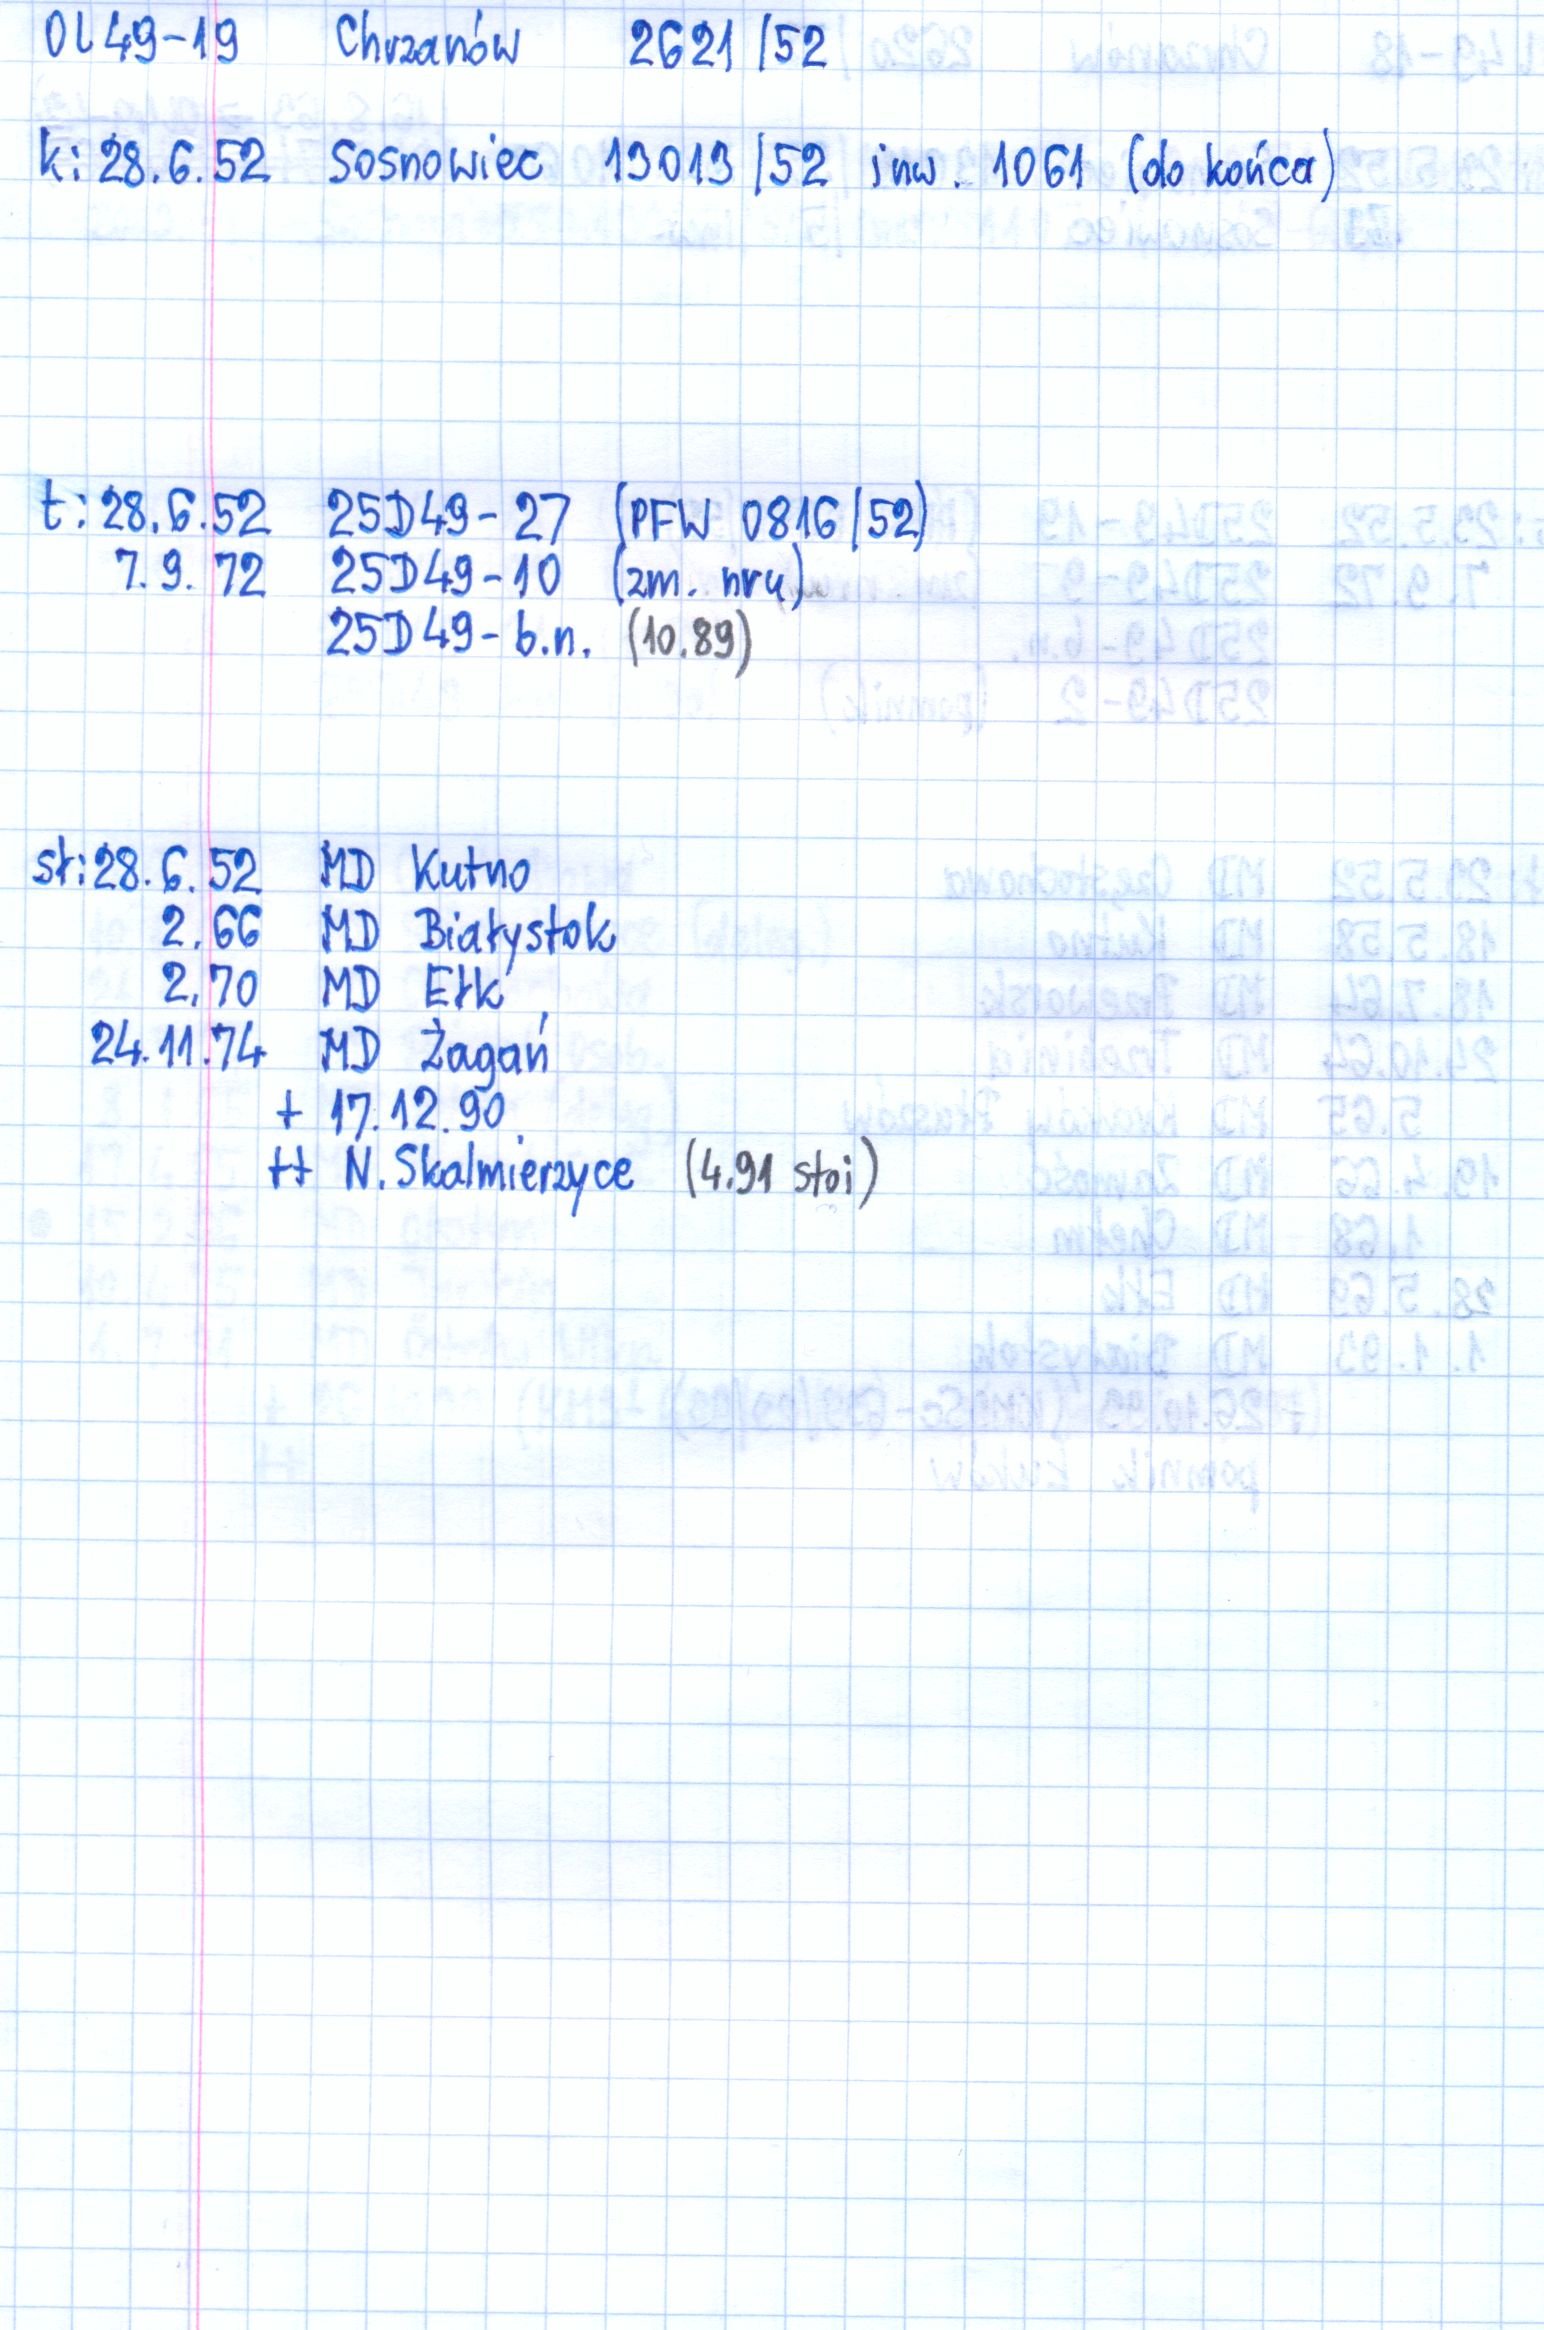 Ol49-19 Chrzanów 2621/52
k: 28.6.52 Sosnowiec 13013/52 inw. 1061 (do końca)
t: 28.6.52 25D49-27 (PFW 0816/52)
7.9.72 25D49-10 (zm. nru)
25D49-b.n. (10.89)
st: 28.6.52 MD Kutno
2.66 MD Białystok
2.70 MD Ełk
24.11.74 MD Żagań
+ 17.12.90
++ N. Skalmierzyce (4.91 stoi)